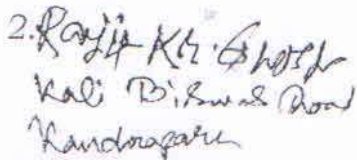 2. Ranjit Kr. Ghosh
Kali Biswas Road
Kandrapara